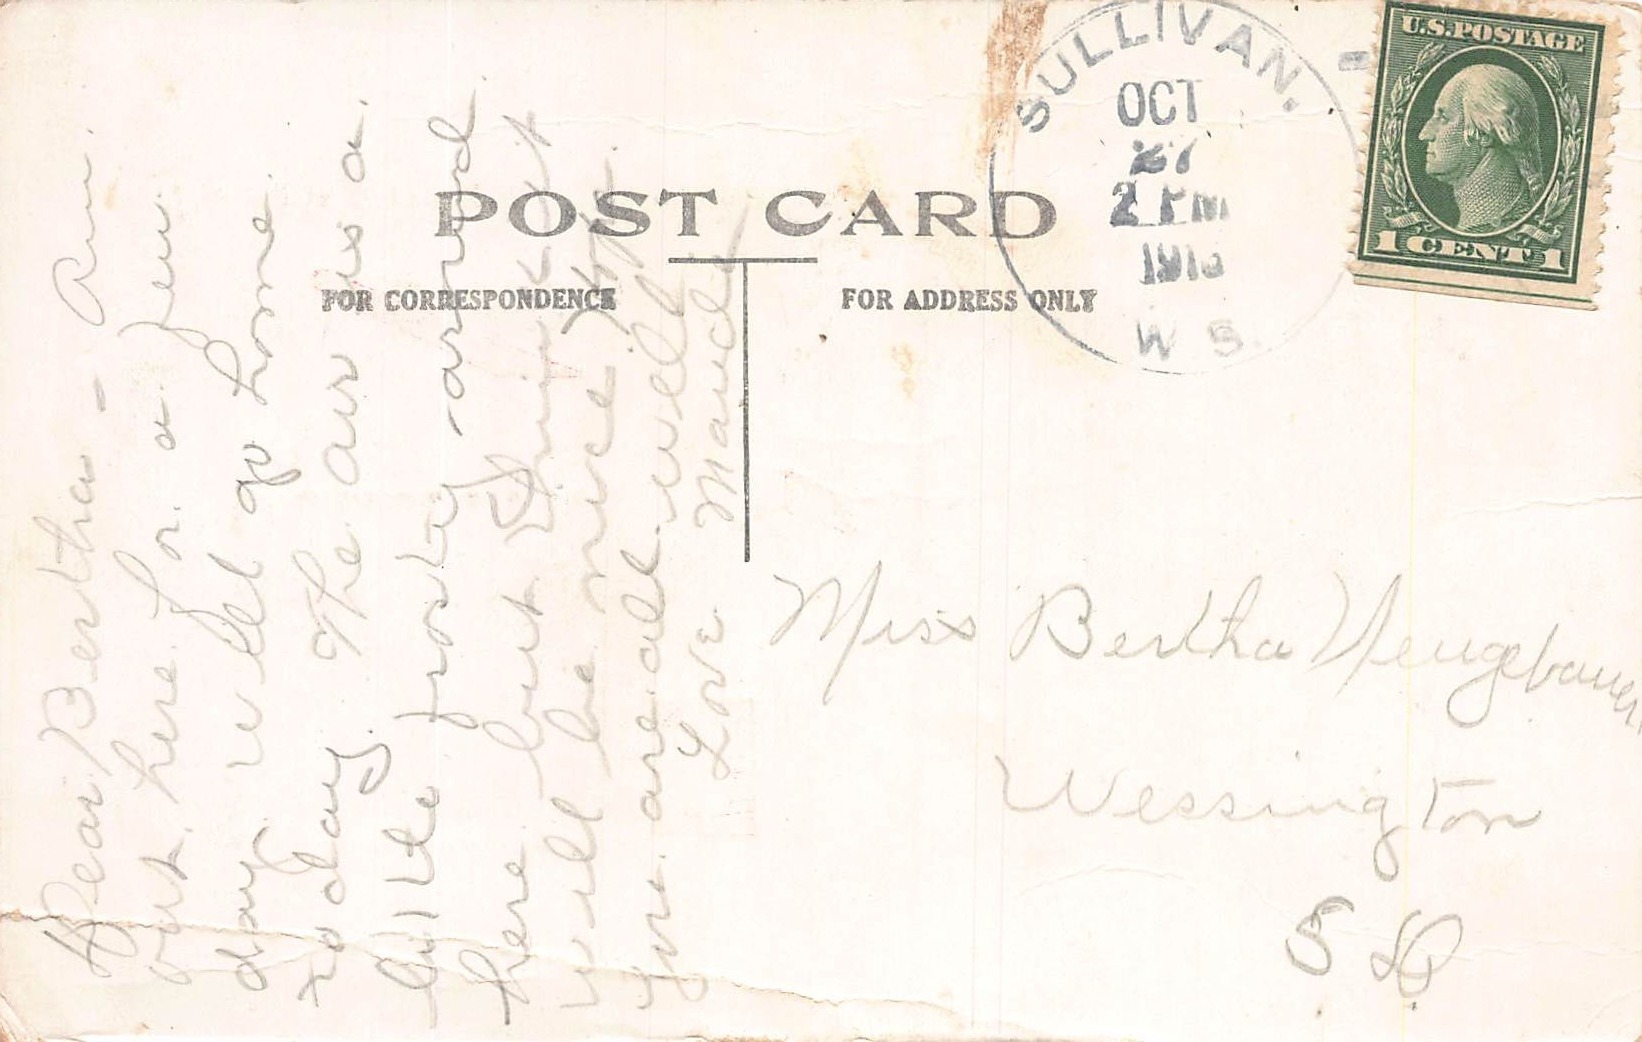 POST CARD
FOR CORRESPONDENCE
FOR ADDRESS ONLY
SULLIVAN.
OCT
27
2 PM
191
WIS.
U.S. POSTAGE
1 CENT 1
Dear Bertha - Am
out here for a few
day will go home
to day. The air is a
little frosty around
here but think it
will be nice
you are all well
Love Maude
Miss Bertha Neugebauer
Wessington
S D.